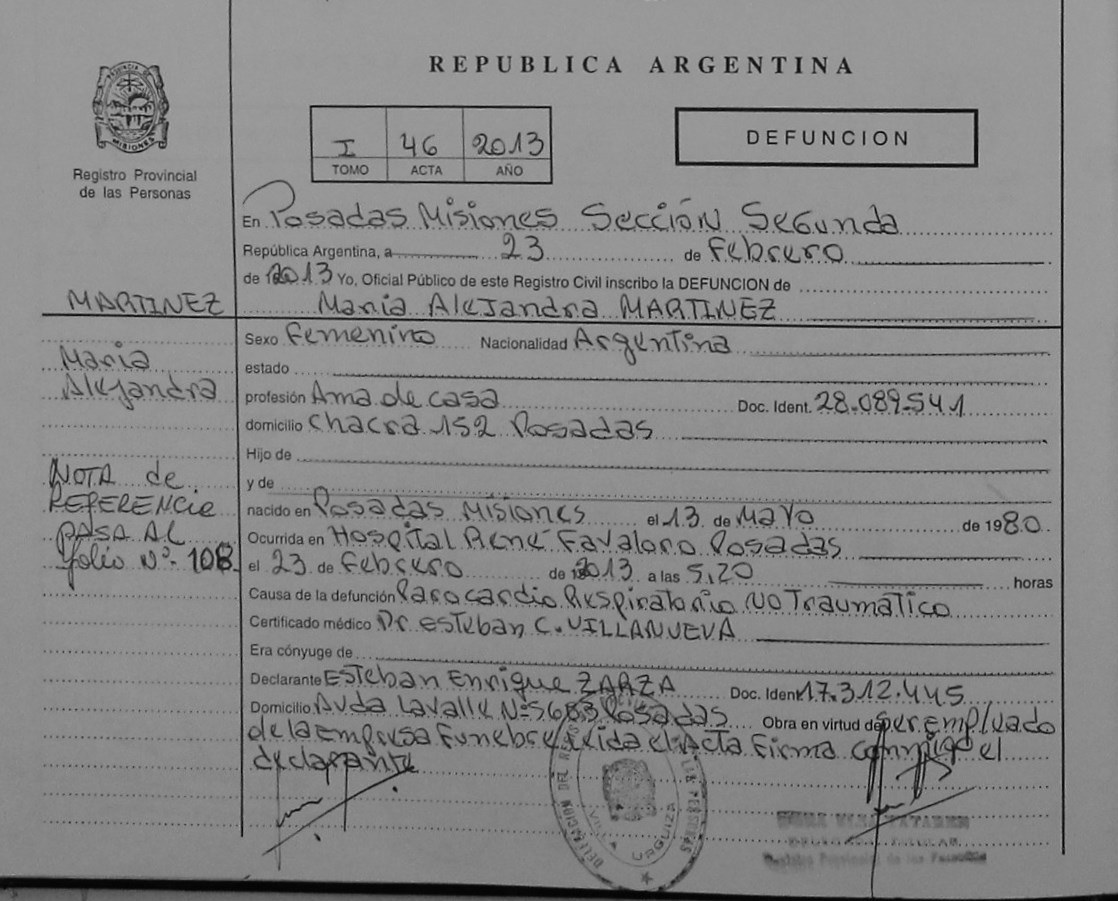 REPUBLICA ARGENTINA
PROVINCIA DE MISIONES
Registro Provincial
de las Personas
I 46 2013
TOMO ACTA AÑO
DEFUNCION
En Posadas Misiones Sección Segunda
República Argentina, a 23 de Febrero
de 2013 Yo, Oficial Público de este Registro Civil inscribo la DEFUNCION de
MARTINEZ
Maria Alejandra MARTINEZ
Maria
Alejandra
Sexo Femenino Nacionalidad Argentina
estado
profesión Ama de casa Doc. Ident. 28.089.541
domicilio Chacra 152 Posadas
Hijo de
y de
NOTA de
REFERENCIA
PASA AL
folio Nº 108
nacido en Posadas Misiones el 13 de Mayo de 1980
Ocurrida en Hospital Rene Favaloro Posadas
el 23 de Febrero de 2013 a las 5,20 horas
Causa de la defunción Paro cardio Respiratorio NO Traumático
Certificado médico Dr. Esteban C. VILLANUEVA
Era cónyuge de
Declarante Esteban Enrique ZARZA Doc. Ident 17.312.445
Domicilio Avda Lavalle Nº 5683 Posadas Obra en virtud de ser empleado
de la Empresa Funebre Leida el Acta Firma conmigo el
declarante
DELEGACION DEL
VILLA URQUIZA